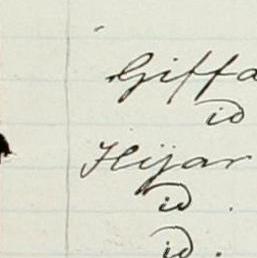 Giffa
id
Hijar
id.
id.